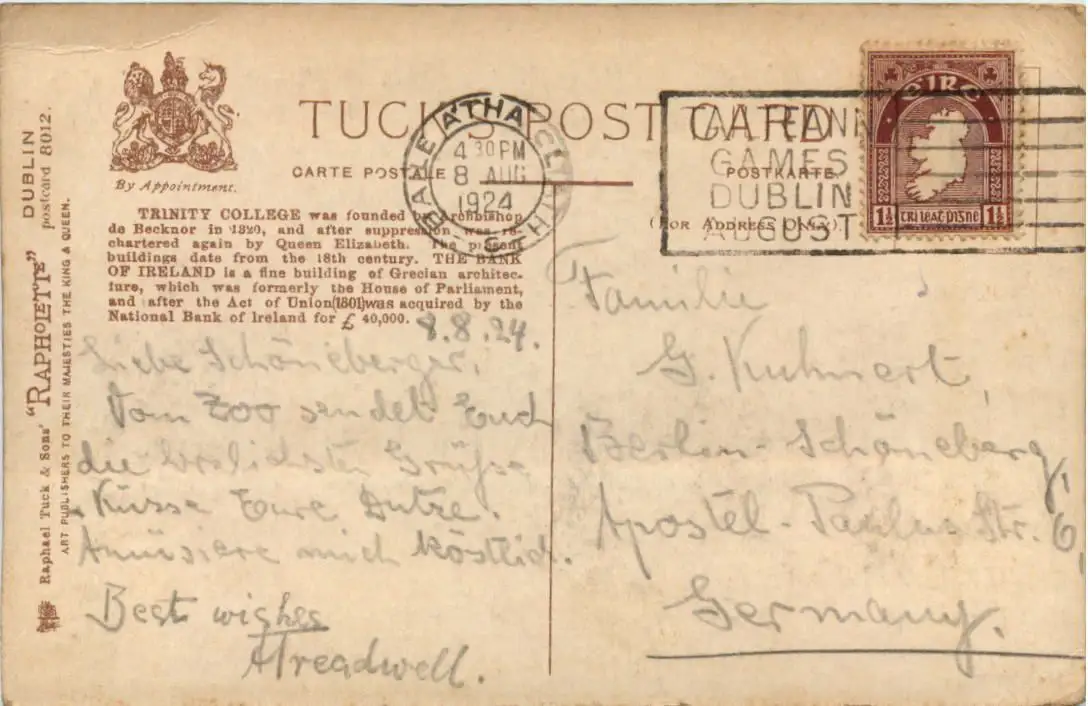 DUBLIN
postcard 8012.
Raphael Tuck & Sons' "RAPHOLETTE"
ART PUBLISHERS TO THEIR MAJESTIES THE KING & QUEEN.
By Appointment.
TUCK'S POST CARD
CARTE POSTALE
POSTKARTE
(For Address Only)
BAILE ÁTHA CLIATH
4 30 PM
8 AUG
1924
TAILTEANN
GAMES
DUBLIN
AUGUST
éire
1½ trí leat-pingne 1½
TRINITY COLLEGE was founded by Archbishop
de Becknor in 1320, and after suppression was re-
chartered again by Queen Elizabeth. The present
buildings date from the 18th century. THE BANK
OF IRELAND is a fine building of Grecian architec-
ture, which was formerly the House of Parliament,
and after the Act of Union (1801) was acquired by the
National Bank of Ireland for £ 40,000.
8.8.24.
Liebe Schöneberger,
Vom Zoo sendet Euch
die herzlichsten Grüsse
u. Küsse Eure
Amüsiere mich köstlich.
Best wishes
ATreadwell.
Familie
G. Kuhnert,
Berlin-Schöneberg,
Apostel-Paulus Str. 6,
Germany.